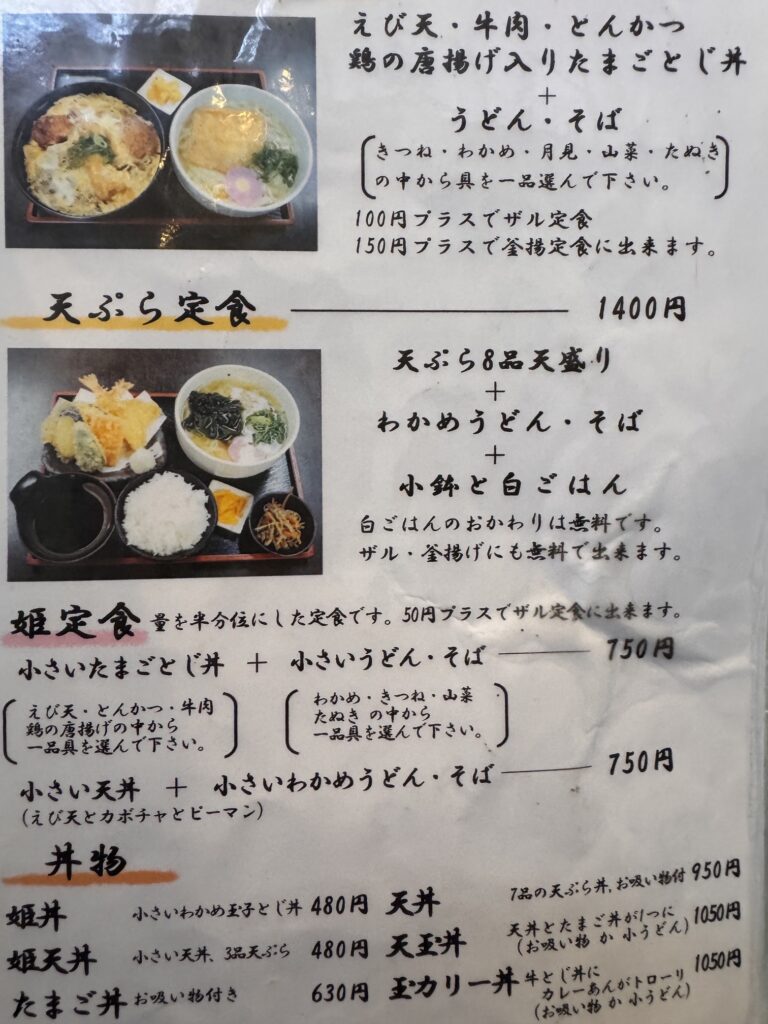 えび天・牛肉・とんかつ
鶏の唐揚げ入りたまごとじ丼
+
うどん・そば
(きつね・わかめ・月見・山菜・たぬき
の中から具を一品選んで下さい。)
100円プラスでザル定食
150円プラスで釜揚定食に出来ます。
天ぷら定食 1400円
天ぷら8品天盛り
+
わかめうどん・そば
+
小鉢と白ごはん
白ごはんのおかわりは無料です。
ザル・釜揚げにも無料で出来ます。
姫定食 量を半分位にした定食です。50円プラスでザル定食に出来ます。
小さいたまごとじ丼 + 小さいうどん・そば 750円
(えび天・とんかつ・牛肉
鶏の唐揚げの中から
一品具を選んで下さい。)
(わかめ・きつね・山菜
たぬき の中から
一品具を選んで下さい。)
小さい天丼 + 小さいわかめうどん・そば 750円
(えび天とカボチャとピーマン)
丼物
姫丼 小さいわかめ玉子とじ丼 480円
姫天丼 小さい天丼、3品天ぷら 480円
たまご丼 お吸い物付き 630円
天丼 7品の天ぷら丼,お吸い物付 950円
天玉丼 天丼とたまご丼が1つに
(お吸い物 か 小うどん) 1050円
玉カリー丼 牛とじ丼に
カレーあんがトローリ
(お吸い物 か 小うどん) 1050円